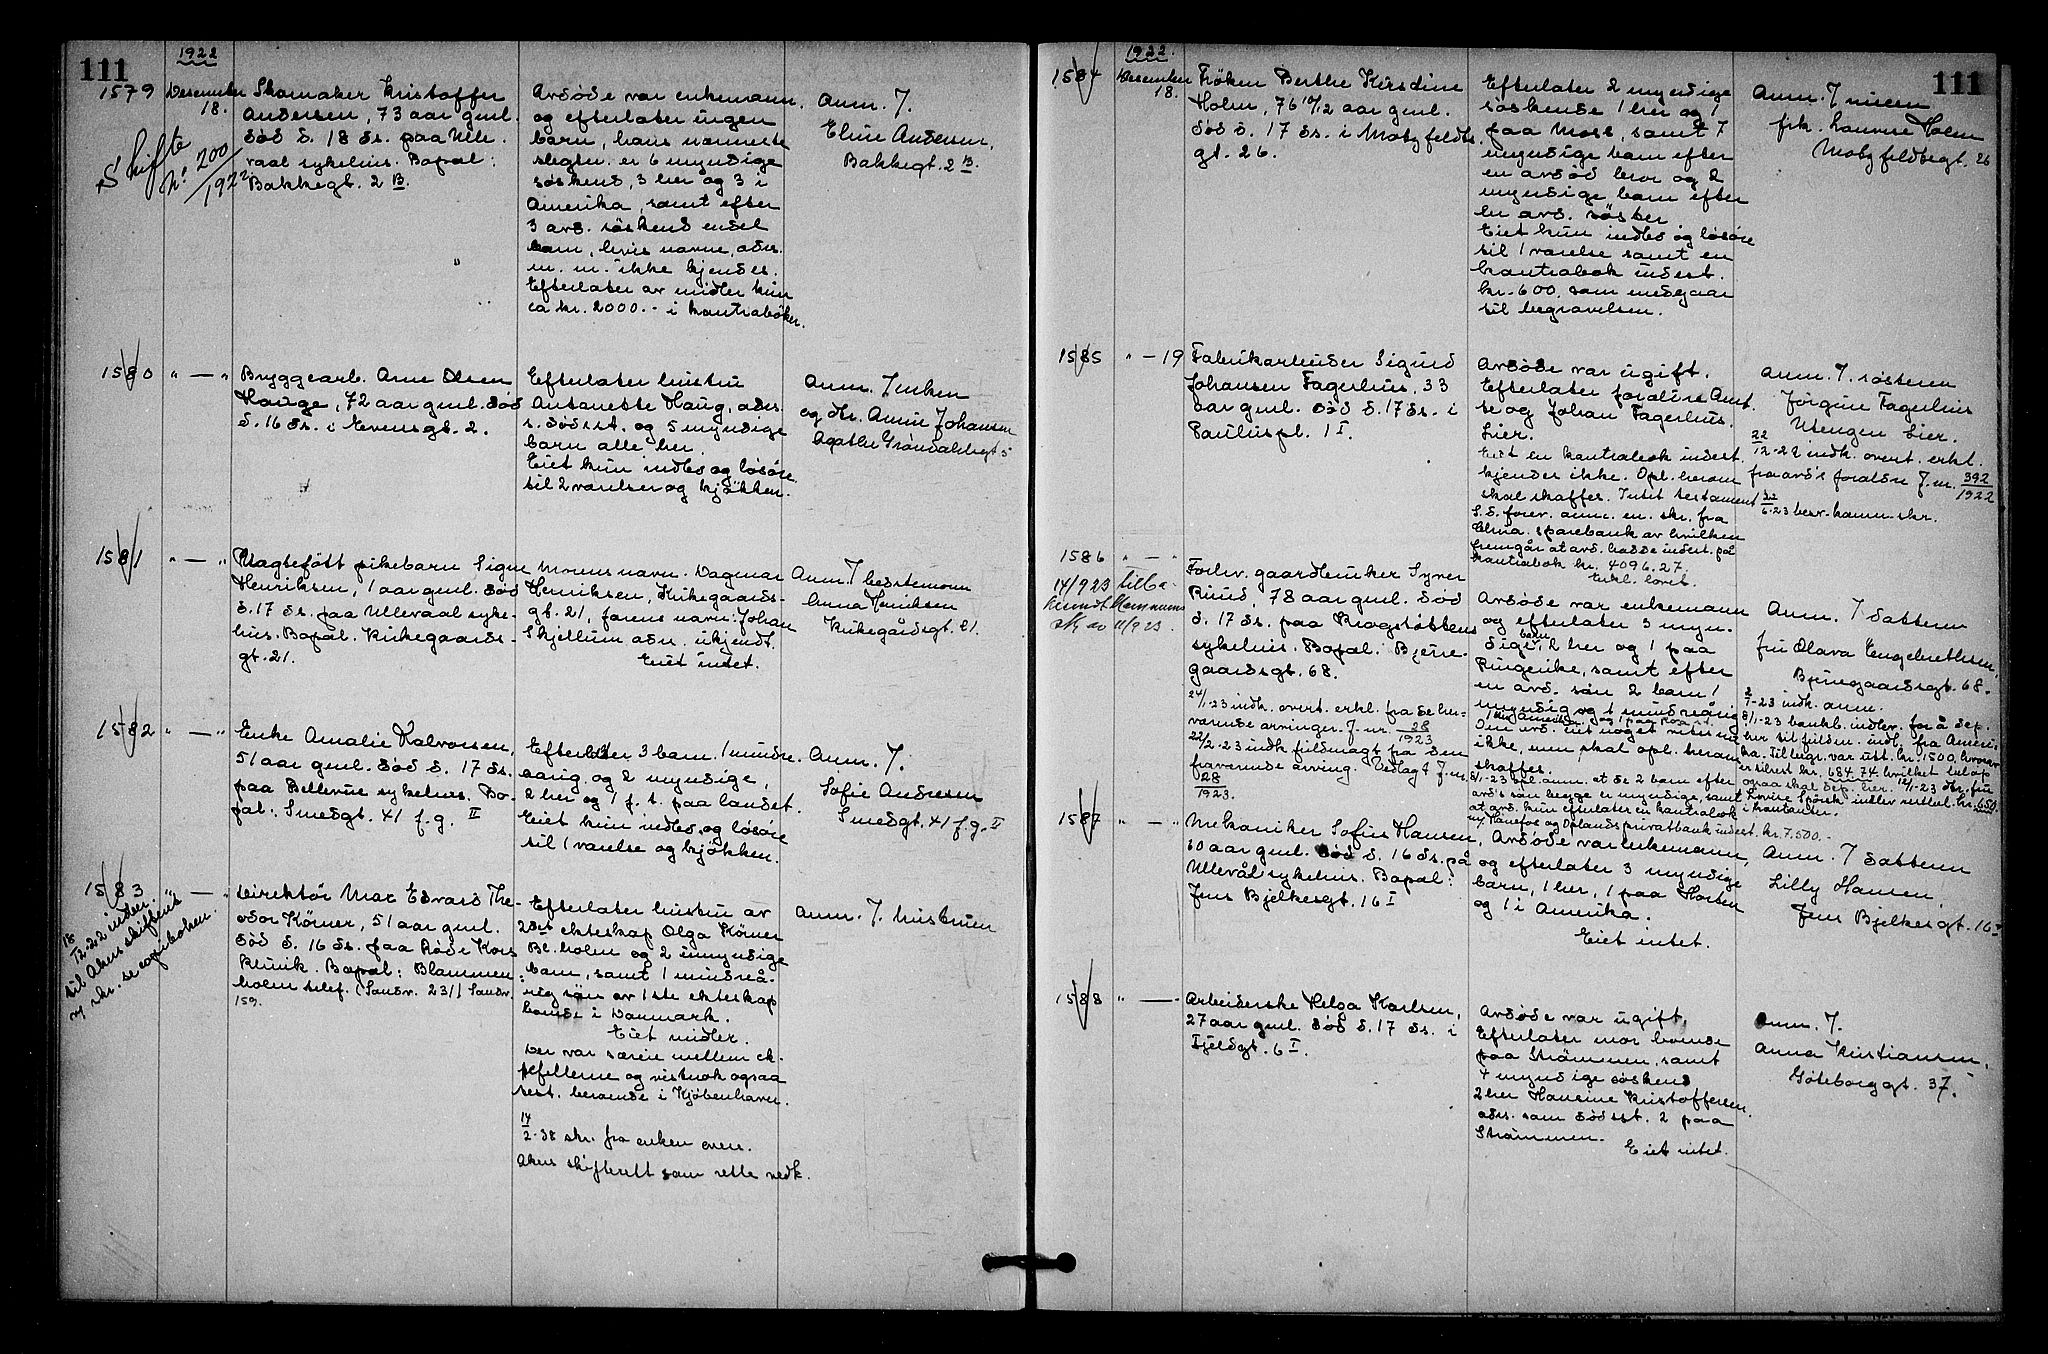 111
1922
1579
Desember
18.
Skomaker Kristoffer
Andersen, 73 aar gml.
død d. 18 ds. paa Ulle-
vaal sykehus. Bopæl:
Bakkegt. 2 B.
Skifte
No 200/1922
Avdøde var enkemann,
og efterlater ingen
barn, hans nærmeste
slegtn. er 6 myndige
søskend, 3 her og 3 i
Amerika, samt efter
3 avd. søskend endel
barn, hvis navne, adr.
m. m. ikke kjendes.
Efterlater av midler kun
ca kr. 2000.- i kontrabøker.
Anm. J.
Eline Andersen,
Bakkegt. 2 B.
1580
" — "
Bryggearb. Arne Olsen
Hauge, 72 aar gml. død
d. 16 ds. i Evensgt. 2.
Efterlater hustru
Antonette Haug, adr.
s. dødsst. og 5 myndige
barn alle her.
Eiet kun indbo og løsøre
til 2 værelser og kjøkken.
Anm. J enken
og fr. Annie Johansen
Agathe Grøndahlsgt 5
1581
" — "
Uægtefött pikebarn Signe
Henriksen, 1 aar gml. død
d. 17 ds. paa Ullevaal syke-
hus. Bopæl. Kirkegaards-
gt. 21.
Morens navn. Dagmar
Henriksen, Kirkegaards-
gt. 21, farens navn: Johan
Skjellum adr. ukjendt.
Eiet intet.
Anm. J bestemoren
Anna Henriksen
Kirkegårdsgt. 21.
1582
" — "
Enke Amalie Halvorsen,
51 aar gml. død d. 17 ds.
paa Bellevue sykehus. Bo-
pæl: Smedgt. 41 f.g. II
Efterlater 3 barn. 1 mindre-
aarig, og 2 myndige,
2 her og 1 f. t. paa landet.
Eiet kun indbo og løsøre
til 1 værelse og kjøkken.
Anm. J.
Sofie Andersen
Smedgt. 41 f.g. II
1583
" — "
18/12-22 indber.
til Akers skifterett
skr. se copiboken.
Direktör Max Edvard The-
odor Körner, 51 aar gml.
död d. 16 ds. paa Röde Kors
Klinik. Bopæl: Blommen-
holm telef. (Sandv. 231) Sandv.
159.
Efterlater hustru av
2det ekteskap Olga Körner
Bl. holm og 2 umyndige
barn, samt 1 mindreå-
rig søn av 1ste ekteskap
boende i Danmark.
Eiet midler.
Der var særeie mellem ek-
tefellerne og vistnok ogsaa
test. beroende i Kjøbenhavn.
14/2-38 skr. fra enken overs.
Akers skifterett som rette vedk.
Anm. J. hustruen
1922
111
1584
Desember
18.
Frøken Berthe Kirstine
Holm, 76 10/12 aar gml.
død d. 17 ds. i Motzfeldts
gt. 26.
Efterlater 2 myndige
søskende 1 her og 1
paa Moss, samt 7
myndige barn efter
en avdød bror og 2
myndige barn efter
en avd. søster
Eiet kun indbo og løsøre
til 1 værelse samt en
kontrabok indest.
kr. 600. som medgaar
til begravelsen.
Anm. J niecen
frk. Laurese Holm
Motzfeldtsgt. 26
1585
" — 19
Fabrikarbeider Sigurd
Johansen Fagerhus, 33
aar gml. død d. 17 ds. i
Pauluspl. 1 I.
Avdøde var ugift.
Efterlater forældre
og Johan Fagerhus.
Lier.
Eiet en kontrabok indest.
kjendes ikke. Opl. herom
skal skaffes. Intet testament
S. d. forev. anm. en skr. fra
Chra. sparebank av hvilken
fremgår at avd. hadde indest. på
kontrabok kr. 4096.27.
Erkl. lovet.
Anm. J. søsteren
Jørgine Fagerhus
Utengen Lier.
22/12-22 indk. overt. erkl.
fra avd's forældre J.nr. 392/1922
22/6-23 besv. komm. skr.
1586
" — "
14/9 23 tilba-
kesendt Kommunens
skr av 11/9 23
Forhv. gaardbruker Syver
Ruud, 78 aar gml. død
d. 17 ds. paa Krogstøttens
sykehus. Bopæl. Bjerre-
gaardsgt. 68.
24/1-23 indk. overt. erkl. fra de her-
værende arvinger. J.nr. 28/1923
22/2-23 indk fuldmagt fra den
fraværende arving. Vedlagt J.nr.
28/1923.
Avdøde var enkemann
og efterlater 3 myn-
dige barn, 2 her og 1 paa
Ringerike, samt efter
en avd. søn 2 barn 1
myndig og 1 mindreårig
Om avd. eiet noget vites
ikke, men skal opl. herom
skaffes.
8/1-23 opl. anm. at de 2 barn efter
avd's søn begge er myndige, samt
at avd. kun efterlater en kontrabok
Hønefos og Oplands privatbank indest. kr. 7.500.-
Anm. J datteren
fru Olava Engebrethsen,
Bjerregaardsgt. 68.
1587
" — "
Mekaniker Sofus Hansen,
60 aar gml. død d. 16 ds. på
Ullevål sykehus. Bopæl:
Jens Bjelkesgt. 16 I
Avdøde var enkemann,
og efterlater 3 myndige
barn, 1 her, 1 paa Horten
og 1 i Amerika.
Eiet intet.
Anm. J datteren
Lilly Hansen,
Jens Bjelkesgt. 16 I
1588
" — "
Arbeiderske Helga Karlsen,
27 aar gml. død d. 17 ds. i
Fjeldgt. 6 I.
Avdøde var ugift,
Efterlater mor boende
paa Strømmen, samt
4 myndige søskend
2 her Hansine Kristoffersen
adr. som dødsst. 2 paa
Strømmen.
Eiet intet.
Anm. J.
Anna Kristiansen,
Göteborggt. 37.